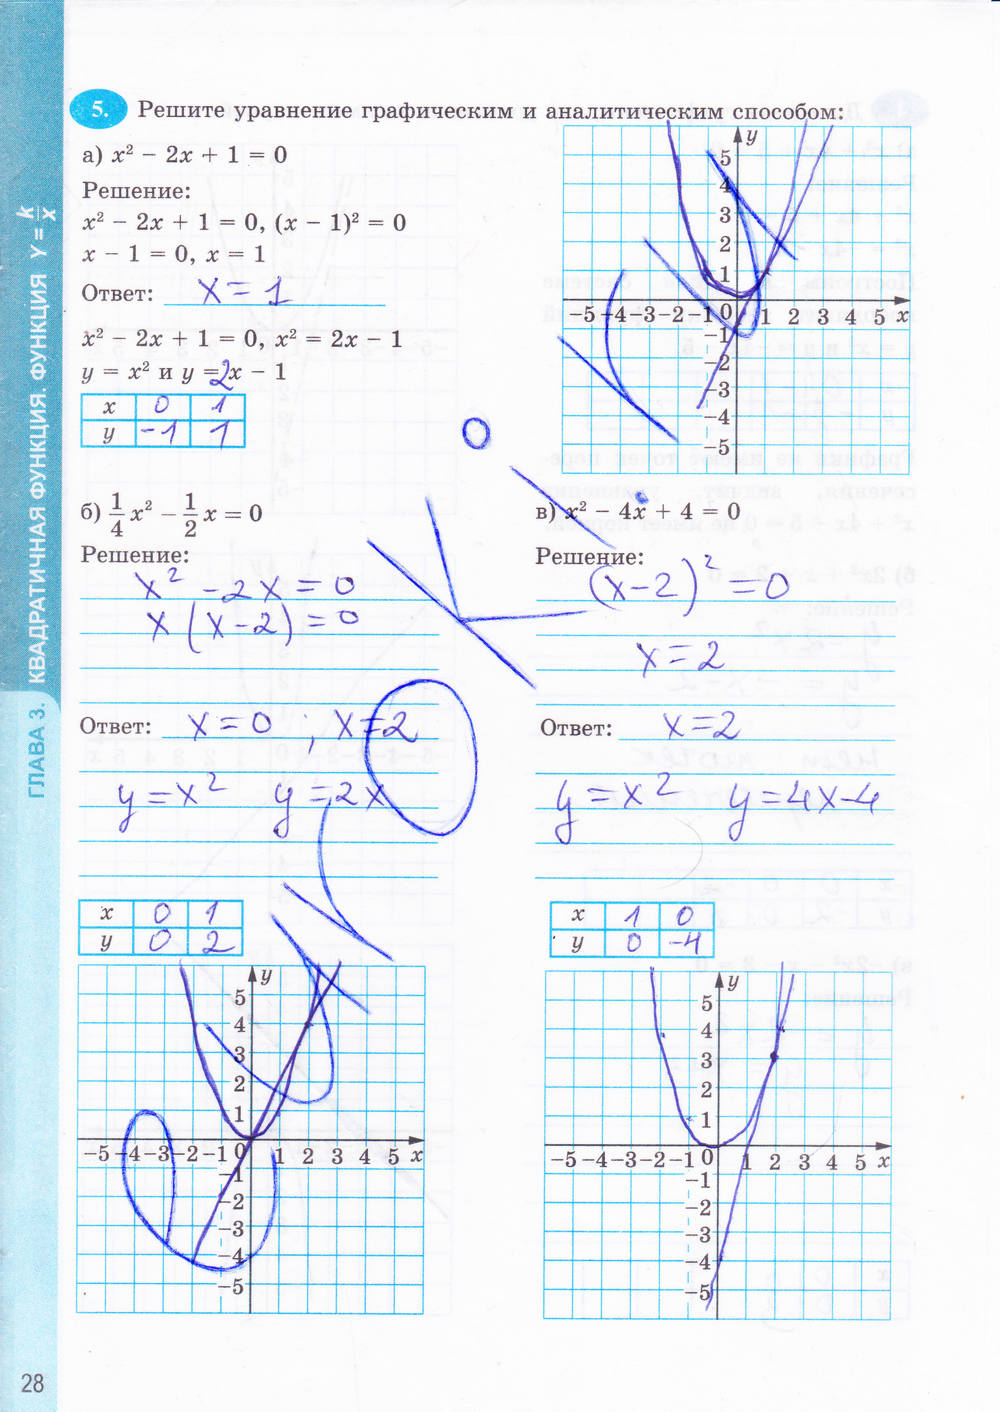 5. Решите уравнение графическим и аналитическим способом:
а) x² − 2x + 1 = 0
Решение:
x² − 2x + 1 = 0, (x − 1)² = 0
x − 1 = 0, x = 1
Ответ: x = 1
x² − 2x + 1 = 0, x² = 2x − 1
y = x² и y = 2x − 1
x 0 1
y −1 1
y
5
4
3
2
1
−5 −4 −3 −2 −1 0 1 2 3 4 5 x
−1
−2
−3
−4
−5
б) 1/4 x² − 1/2 x = 0
Решение:
x² − 2x = 0
x (x − 2) = 0
Ответ: x = 0 ; x = 2
y = x² y = 2x
x 0 1
y 0 2
y
5
4
3
2
1
−5 −4 −3 −2 −1 0 1 2 3 4 5 x
−1
−2
−3
−4
−5
в) x² − 4x + 4 = 0
Решение:
(x − 2)² = 0
x = 2
Ответ: x = 2
y = x² y = 4x − 4
x 1 0
y 0 −4
y
5
4
3
2
1
−5 −4 −3 −2 −1 0 1 2 3 4 5 x
−1
−2
−3
−4
−5
ГЛАВА 3. КВАДРАТИЧНАЯ ФУНКЦИЯ. ФУНКЦИЯ Y = k/x
28